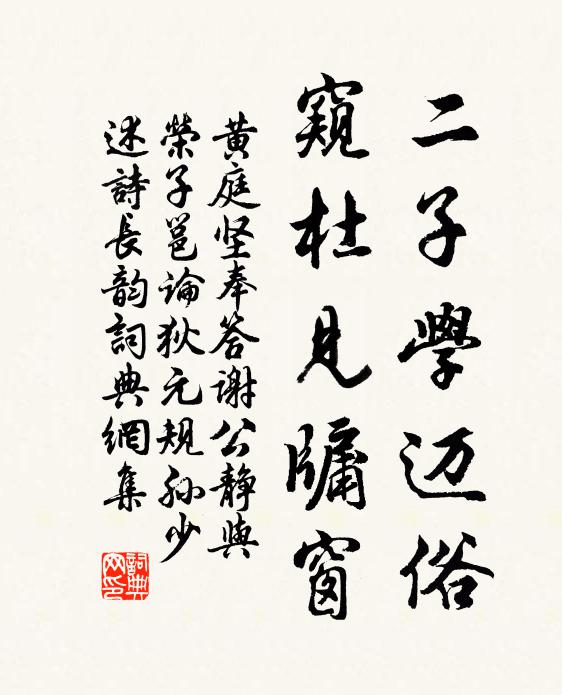 二子學迈俗
窺杜見牖窗
黄庭坚奉答谢公静與
榮子邕論狄元規孙少
述詩長韵詞典網集
詞典网印